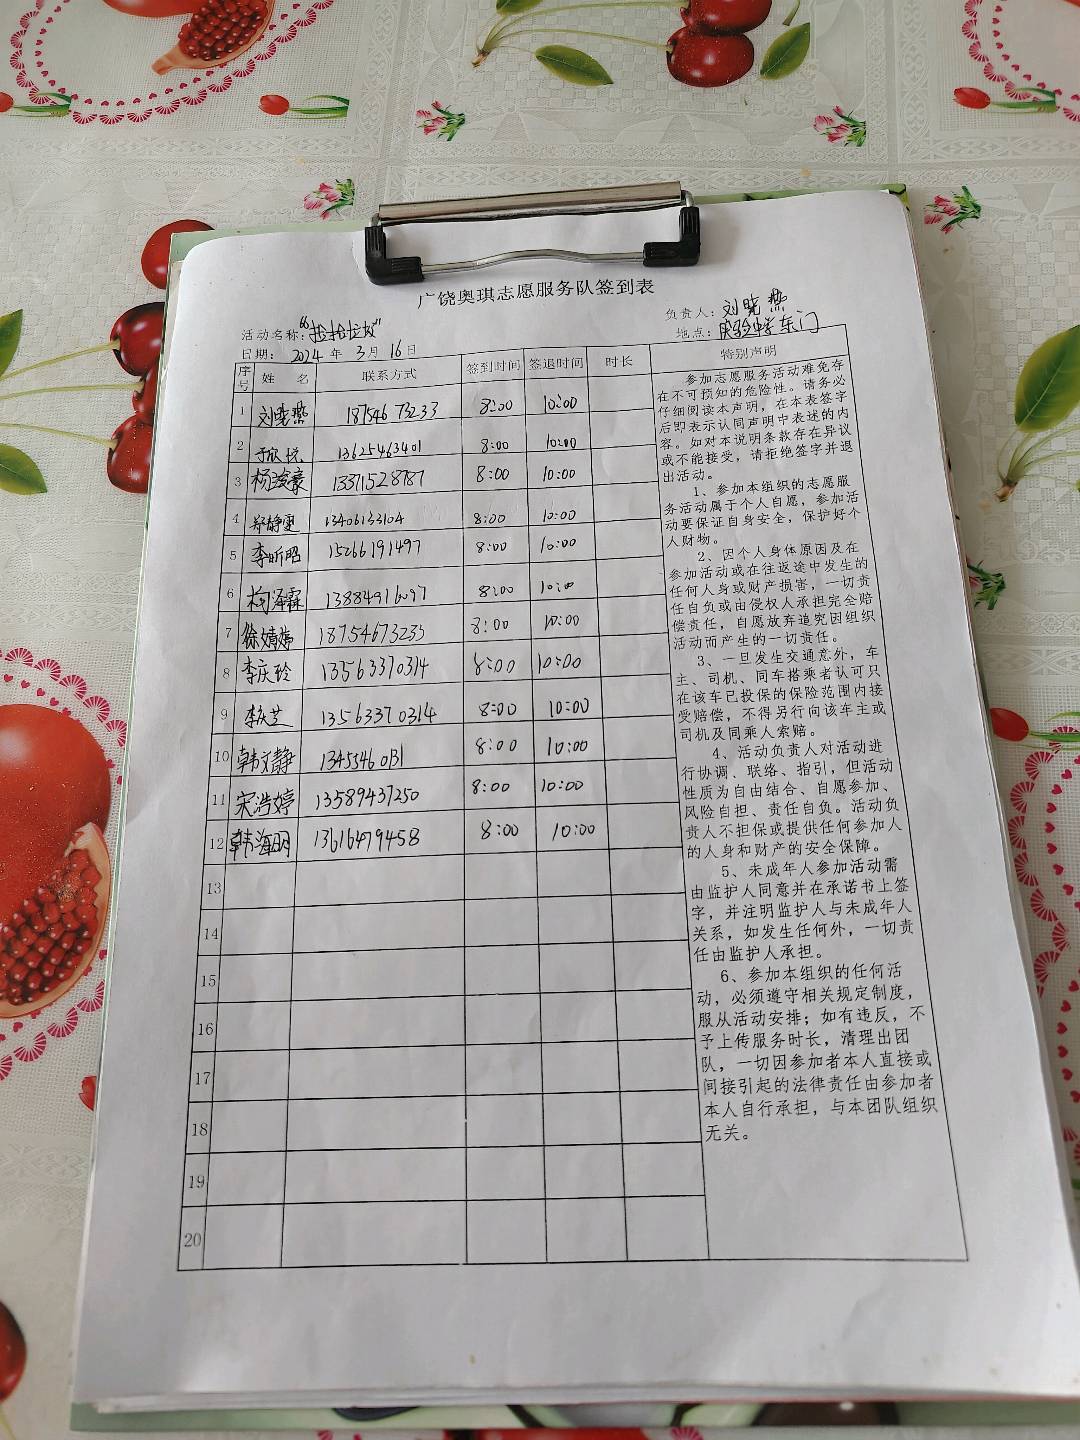 广饶奥琪志愿服务队签到表
负责人：刘晓燕
活动名称："捡拾垃圾"
地点：实验中学东门
日期：2024年3月16日
序号 姓 名 联系方式 签到时间 签退时间 时长 特别声明
1 刘晓燕 18754673233 8:00 10:00
2 于欣悦 13625463401 8:00 10:00
3 杨浚豪 13371528787 8:00 10:00
4 郑静雯 13406133104 8:00 10:00
5 李昕昭 15266191497 8:00 10:00
6 泽霖 13884916097 8:00 10:00
7 徐婧 18754673233 8:00 10:00
8 李庆玲 13563370314 8:00 10:00
9 李庆芝 13563370314 8:00 10:00
10 韩文静 8:00 10:00
11 宋浩婷 13589437250 8:00 10:00
12 韩海明 13616479458 8:00 10:00
13
14
15
16
17
18
19
20
参加志愿服务活动难免存
在不可预知的危险性。请务必
仔细阅读本声明，在本表签字
后即表示认同声明中表述的内
容。如对本说明条款存在异议
或不能接受，请拒绝签字并退
出活动。
1、参加本组织的志愿服
务活动属于个人自愿，参加活
动要保证自身安全，保护好个
人财物。
2、因个人身体原因及在
参加活动或在往返途中发生的
任何人身或财产损害，一切责
任自负或由侵权人承担完全赔
偿责任，自愿放弃追究因组织
活动而产生的一切责任。
3、一旦发生交通意外，车
主、司机、同车搭乘者认可只
在该车已投保的保险范围内接
受赔偿，不得另行向该车主或
司机及同乘人索赔。
4、活动负责人对活动进
行协调、联络、指引，但活动
性质为自由结合、自愿参加、
风险自担、责任自负。活动负
责人不担保或提供任何参加人
的人身和财产的安全保障。
5、未成年人参加活动需
由监护人同意并在承诺书上签
字，并注明监护人与未成年人
关系，如发生任何外，一切责
任由监护人承担。
6、参加本组织的任何活
动，必须遵守相关规定制度，
服从活动安排；如有违反，不
予上传服务时长，清理出团
队，一切因参加者本人直接或
间接引起的法律责任由参加者
本人自行承担，与本团队组织
无关。